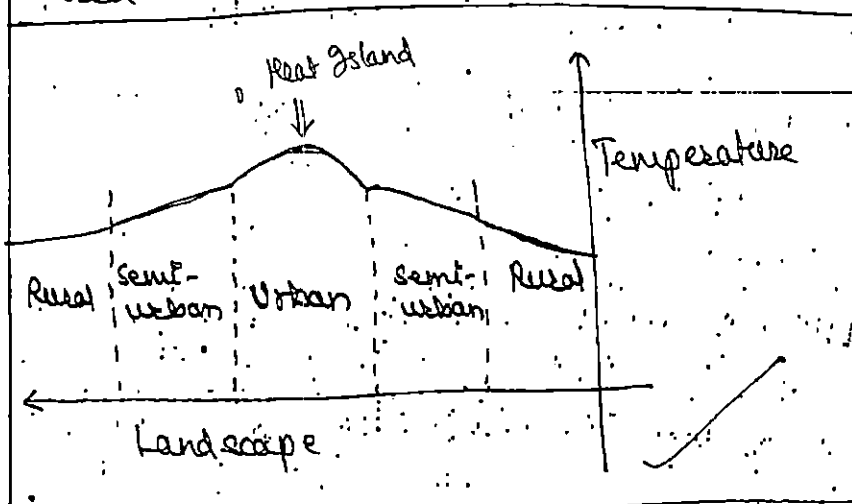 Heat Island
Temperature
Rural semi-urban Urban semi-urban Rural
Landscape